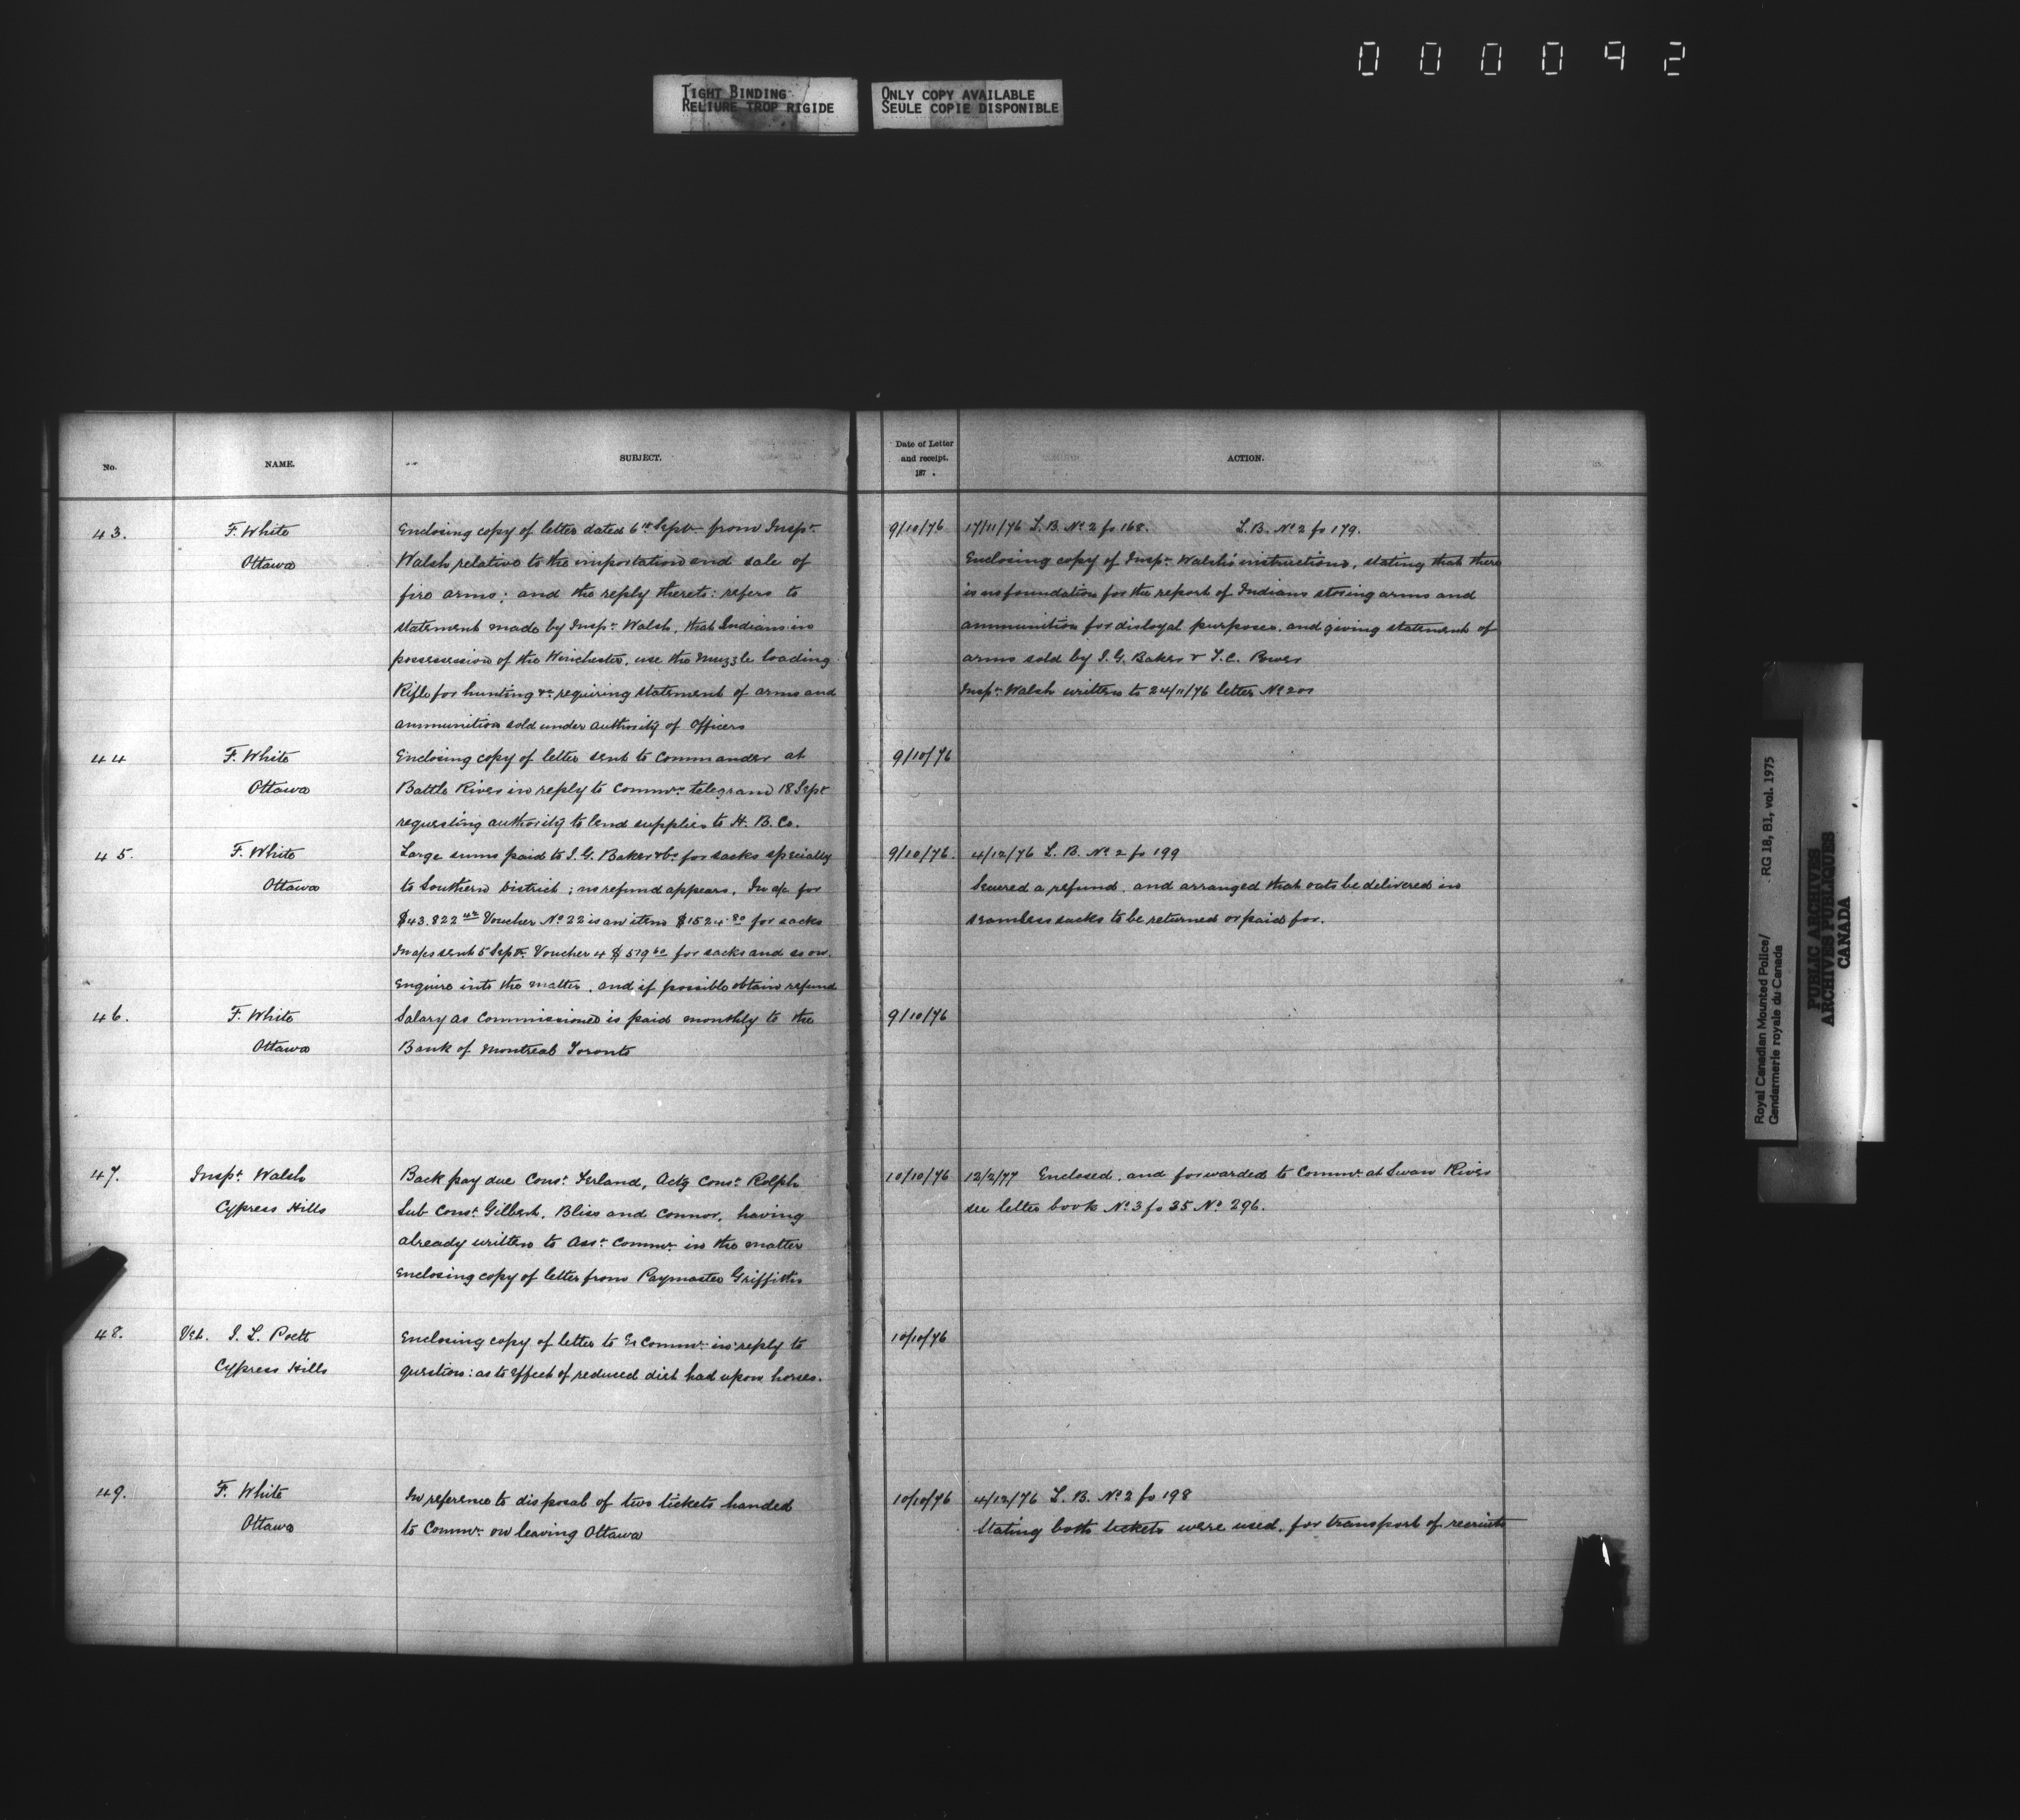 000092
TIGHT BINDING
RELIURE TROP RIGIDE
ONLY COPY AVAILABLE
SEULE COPIE DISPONIBLE
No.
NAME.
SUBJECT.
Date of Letter
and receipt.
187 .
ACTION.
43.
F. White
Ottawa
Enclosing copy of letter dated 6th Sept. from Inspr.
Walsh relative to the importation and sale of
fire arms; and the reply thereto: refers to
statement made by Inspr. Walsh, that Indians in
possession of the Winchester, use the Muzzle loading
Rifle for hunting &c requiring statement of arms and
ammunition sold under authority of Officers
9/10/76
17/11/76 L.B. No 2 fo 168. L.B. No 2 fo 179.
Enclosing copy of Inspr. Walsh's instructions, stating that there
is no foundation for the report of Indians storing arms and
ammunition for disloyal purposes. and giving statement of
arms sold by I.G. Baker & T.C. Power
Inspr. Walsh written to 24/11/76 letter No 201
44
F. White
Ottawa
Enclosing copy of letter sent to Commander at
Battle River in reply to Commr. telegram 18 Sept
requesting authority to lend supplies to H. B. Co.
9/10/76
45.
F. White
Ottawa
Large sums paid to I. G. Baker & Co. for sacks specially
to Southern District; no refund appears. In a/c for
$43.822 Voucher No 22 is an item $1524.80 for sacks
In a/cs sent 5 Sept. Voucher 4 $579 for sacks and so on.
Enquire into the matter, and if possible obtain refund
9/10/76.
4/12/76 L. B. No 2 fo 199
Secured a refund, and arranged that oats be delivered in
seamless sacks to be returned or paid for.
46.
F. White
Ottawa
Salary as Commissioner is paid monthly to the
Bank of Montreal Toronto
9/10/76
47.
Inspr. Walsh
Cypress Hills
Back pay due Const. Ferland, Actg Const. Rolph
Sub Const. Gilbert, Bliss and Connor, having
already written to Asst. Commr. in the matter
Enclosing copy of letter from Paymaster Griffiths
10/10/76
12/2/77 Enclosed, and forwarded to Commr. at Swan River
see letter book No 3 fo 35 No 296.
48.
Vet. I. L. Poett
Cypress Hills
Enclosing copy of letter to Ex Commr. in reply to
question: as to effect of reduced diet had upon horses.
10/10/76
49.
F. White
Ottawa
In reference to disposal of two tickets handed
to Commr. on leaving Ottawa
10/10/76
4/12/76 L. B. No 2 fo 198
Stating both tickets were used, for transport of recruits
Royal Canadian Mounted Police/
Gendarmerie royale du Canada
RG 18, B1, vol. 1975
PUBLIC ARCHIVES
ARCHIVES PUBLIQUES
CANADA